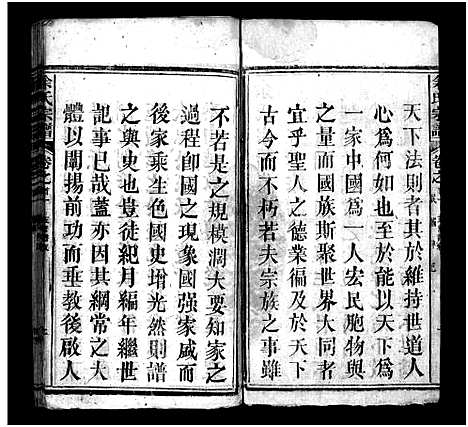 天下法則者其於維持世道人
心爲何如也夫能以天下爲
一家中國爲一人宏民胞物與
之量而國族斯聚世界大同者
宜乎聖人之德業徧及於天下
古今而不朽若夫宗族之事雖
不若是之規模濶大要知家之
過程卽國之現象國强家咸而
後家乘生色國史增光然則譜
之與史也豈徒紀月編年繼世
記事已哉蓋亦因其綱常之大
體以闡揚前功而垂教後啟人
余氏宗譜
卷之一
余氏宗譜
卷之一